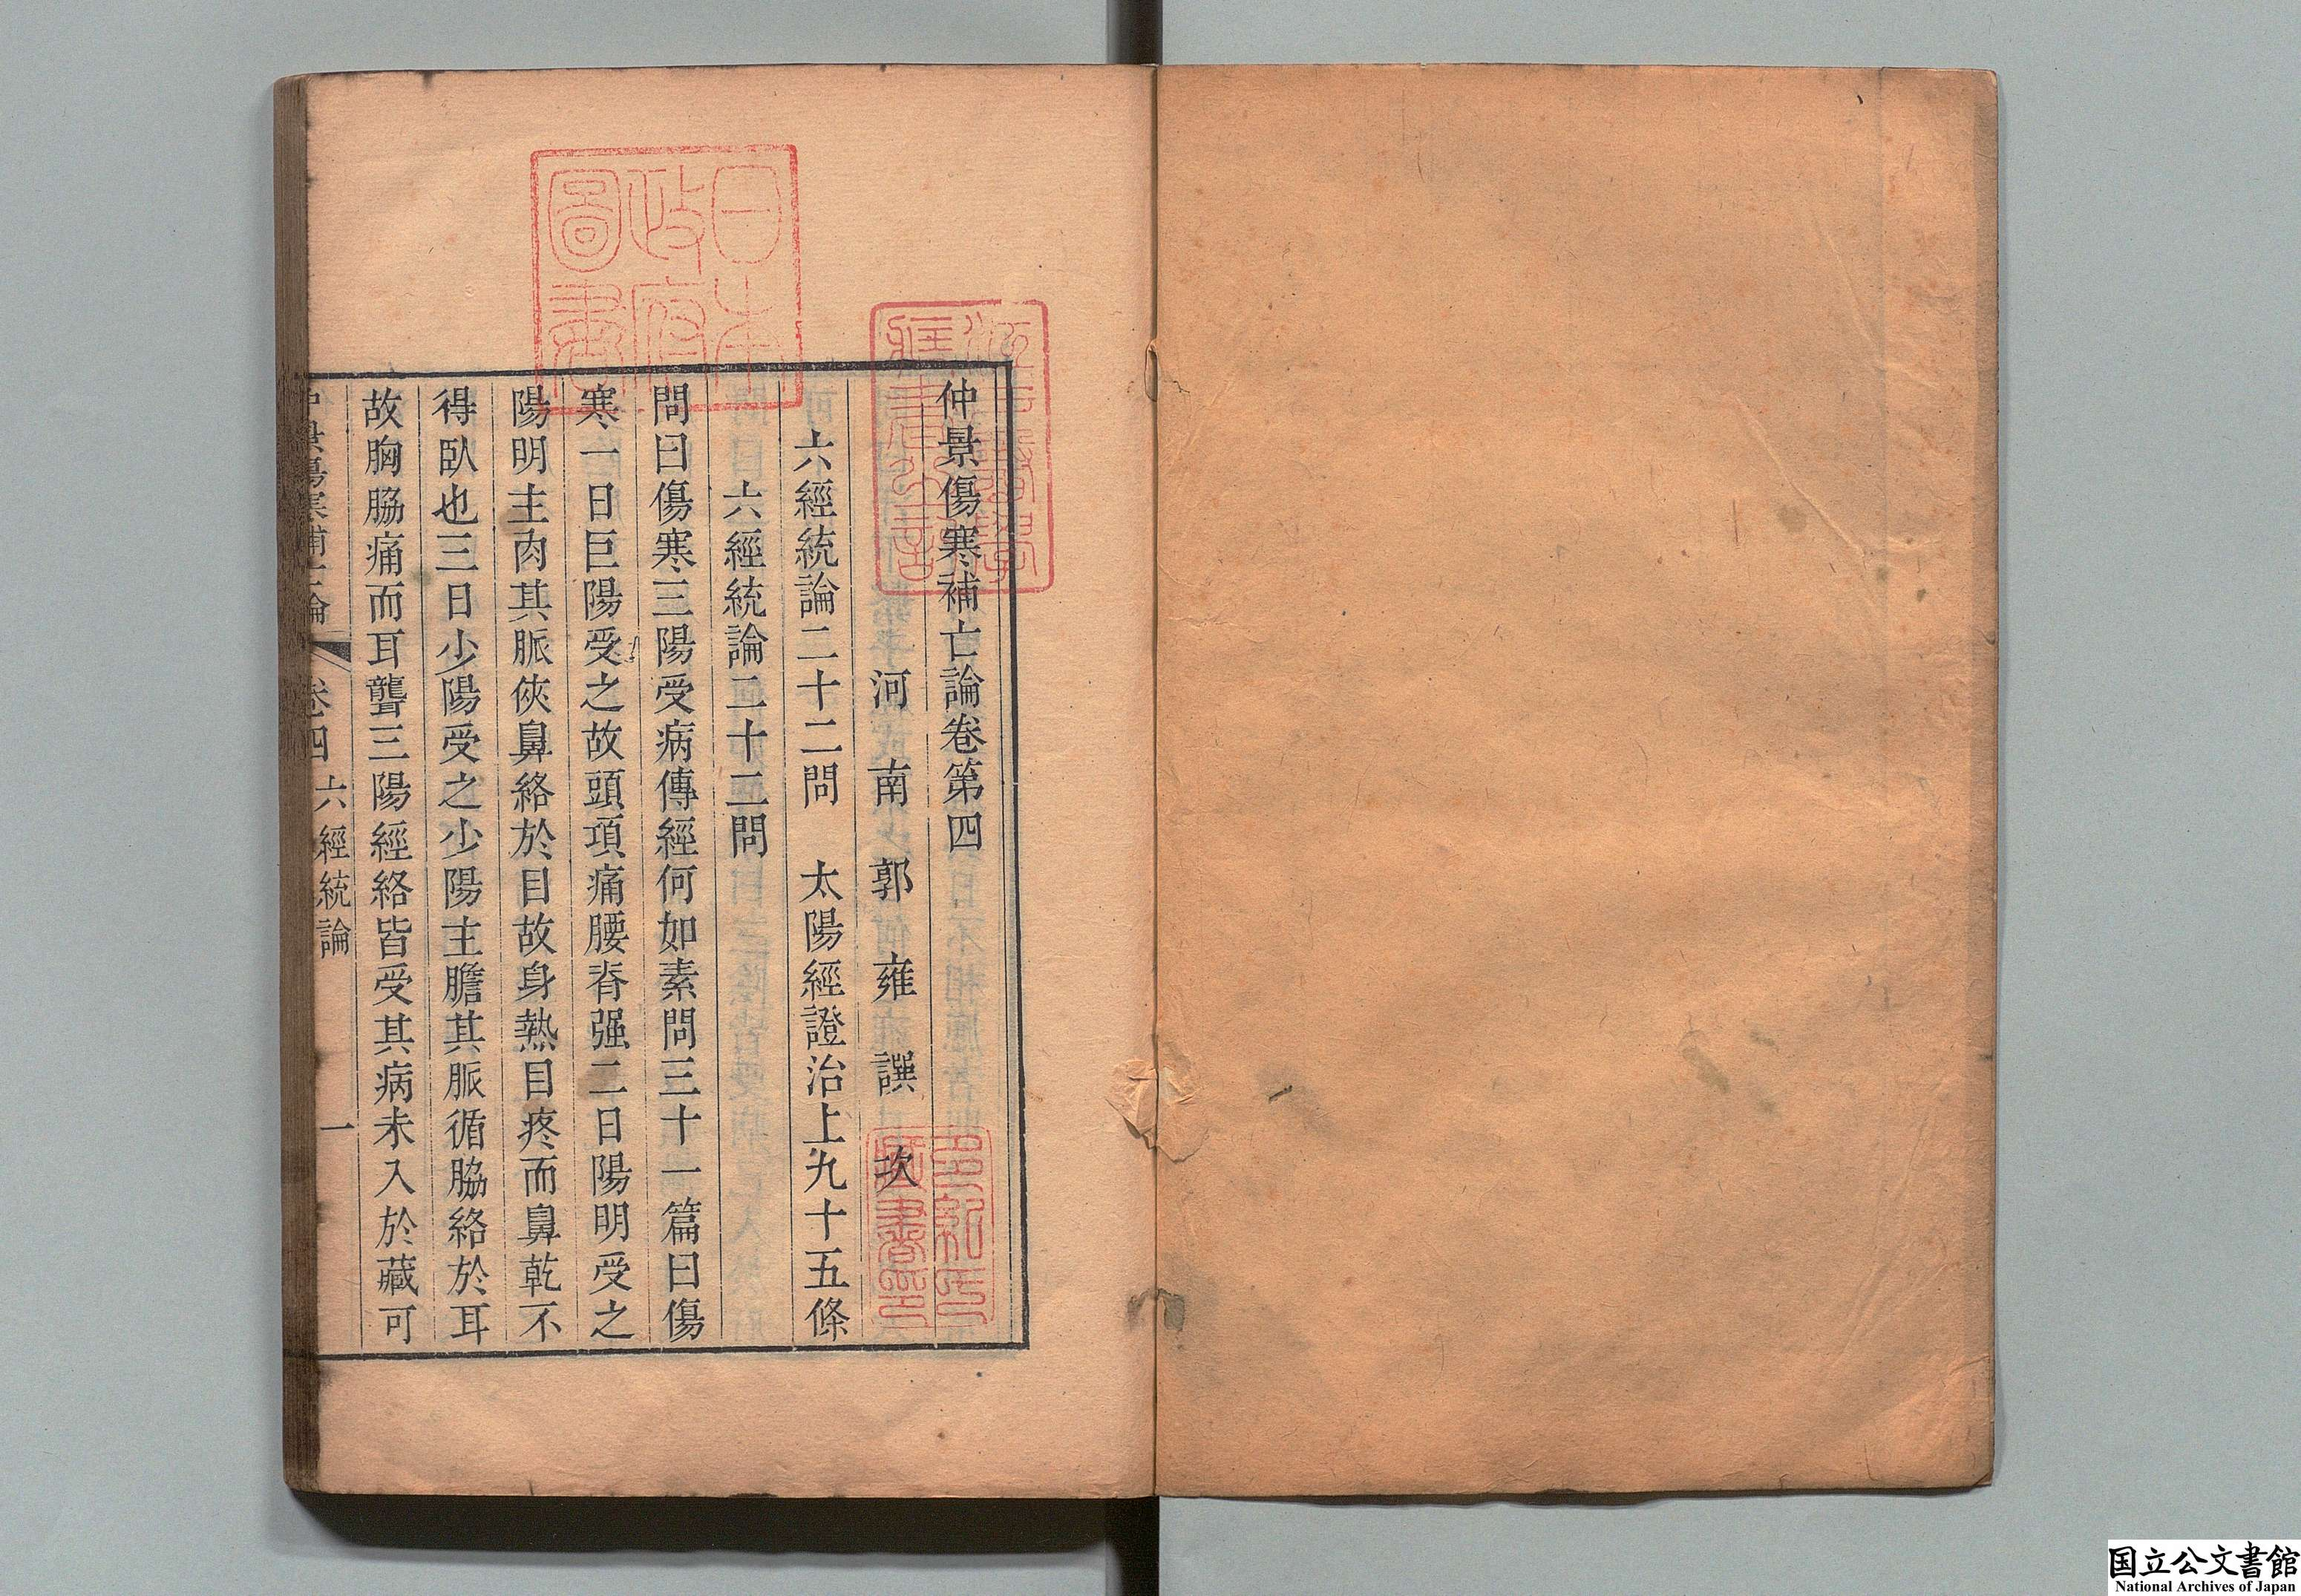 仲景傷寒補亡論卷第四
河南郭雍譔次
六經統論二十二問　太陽經證治上九十五條
六經統論二十二問
問曰傷寒三陽受病傳經何如素問三十一篇曰傷
寒一日巨陽受之故頭項痛腰脊强二日陽明受之
陽明主肉其脈俠鼻絡於目故身熱目疼而鼻乾不
得臥也三日少陽受之少陽主膽其脈循脇絡於耳
故胸脇痛而耳聾三陽經絡皆受其病未入於藏可
仲景傷寒補亡論　卷四　六經統論　一
日本政府圖書
国立公文書館
National Archives of Japan